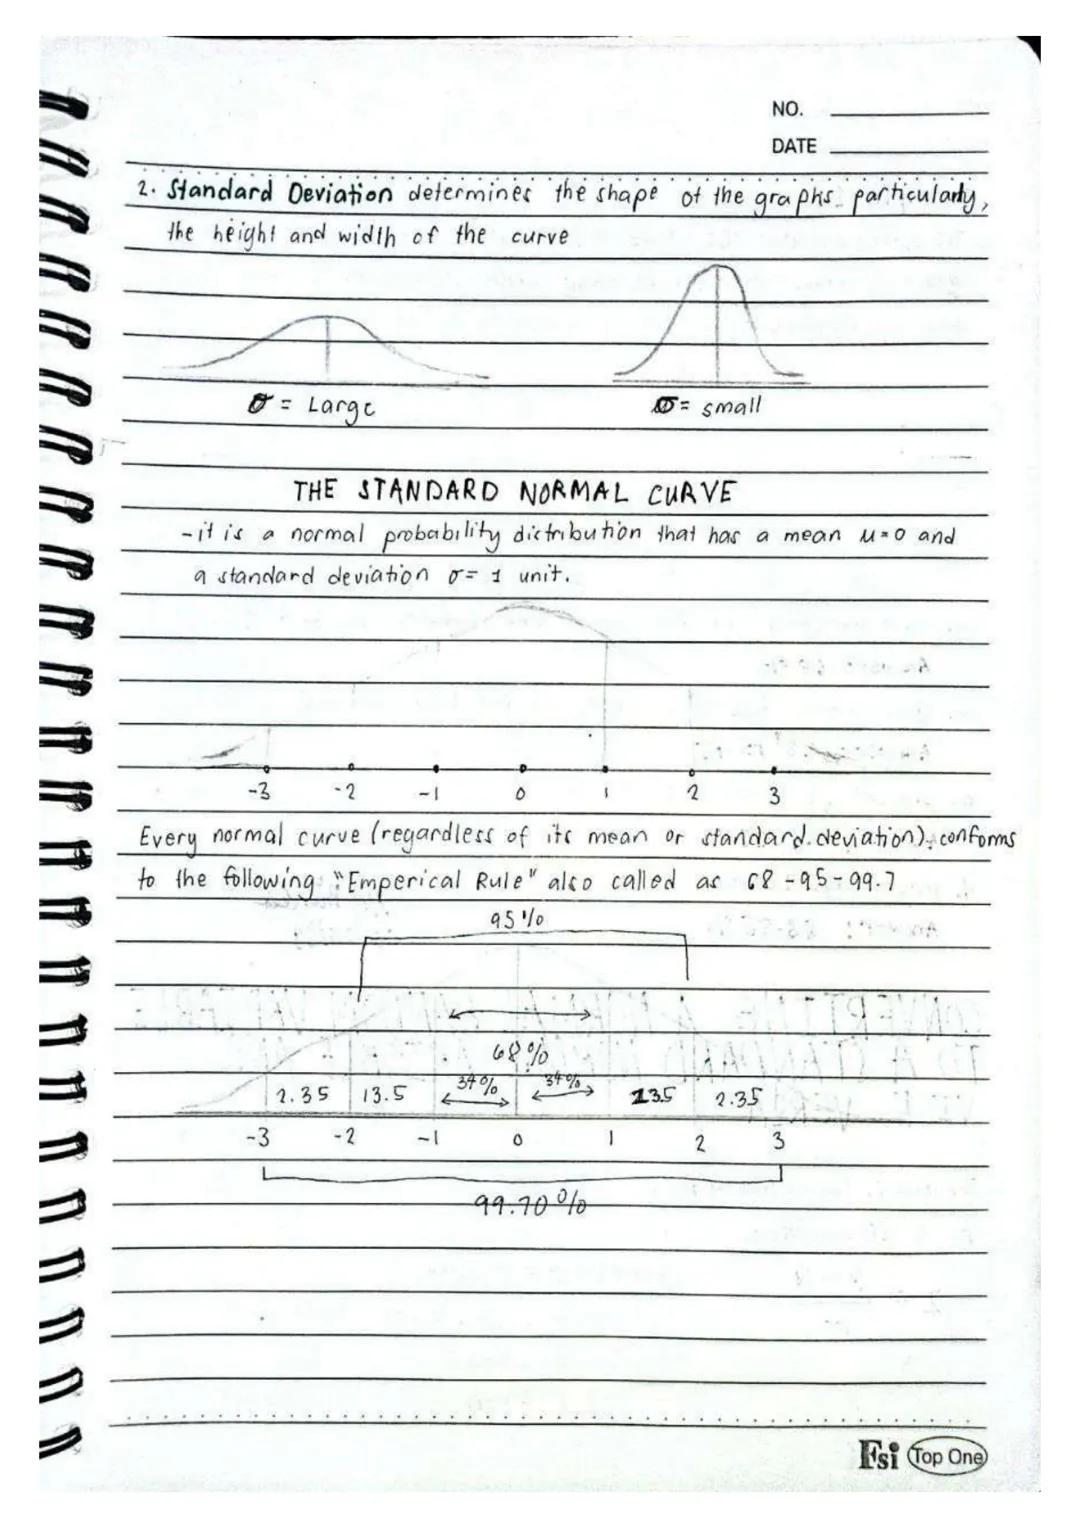 NO.
DATE
2. Standard Deviation determines the shape of the graphs particularly,
the height and width of the curve
σ = Large
σ = small
THE STANDARD NORMAL CURVE
- it is a normal probability distribution that has a mean μ=0 and
a standard deviation σ= 1 unit.
-3 -2 -1 0 1 2 3
Every normal curve (regardless of its mean or standard deviation), conforms
to the following "Emperical Rule" also called as 68-95-99.7
95%
68%
2.35 13.5 34% 34% 13.5 2.35
-3 -2 -1 0 1 2 3
99.70%
Fsi Top One